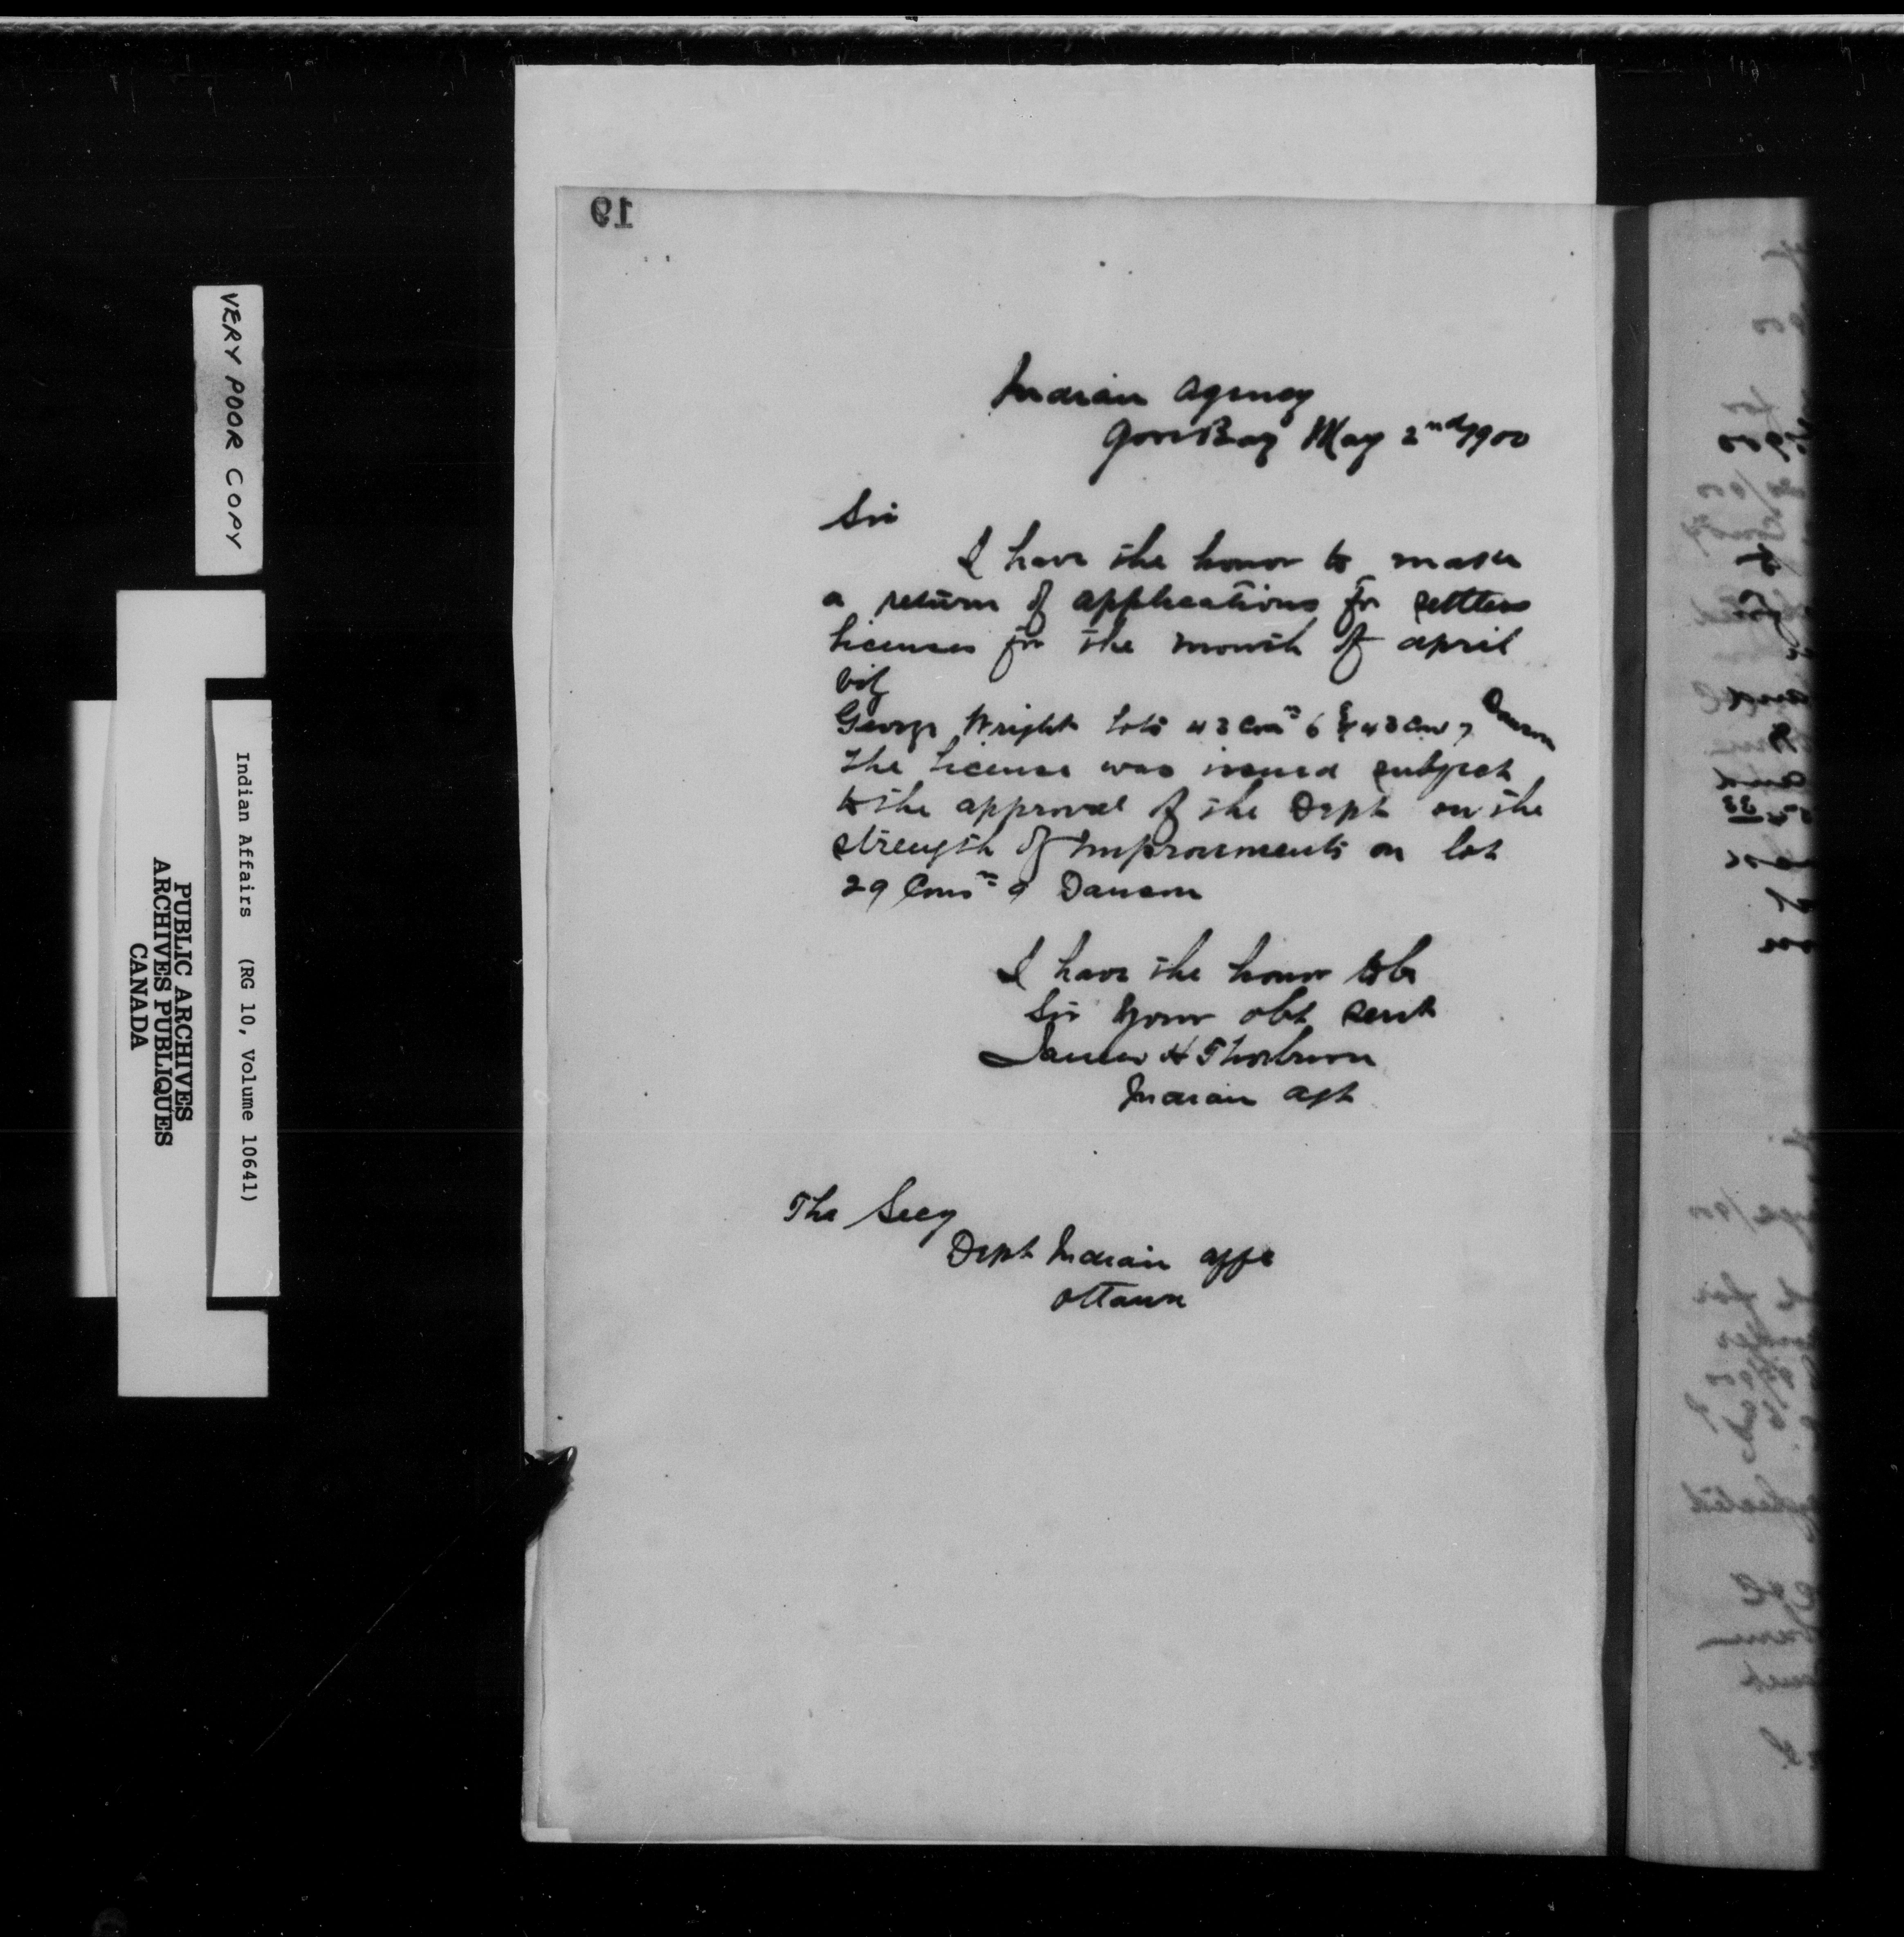 19
Indian Agency
Gore Bay May 2nd 1900
Sir
I have the honor to make
a return of applications for settlers
licenses for the month of april
viz
George Wright lots 43 Conn 6 & 43 Con 7 Dawson
The license was issued subject
to the approval of the Dept on the
strength of improvements on lot
29 Consn 9 Dawson
I have the honor to be
Sir your obt servt
James H Thorburn
Indian Agt
The Secy
Dept Indian affs
Ottawa
VERY POOR COPY
Indian Affairs (RG 10, Volume 10641)
PUBLIC ARCHIVES
ARCHIVES PUBLIQUES
CANADA